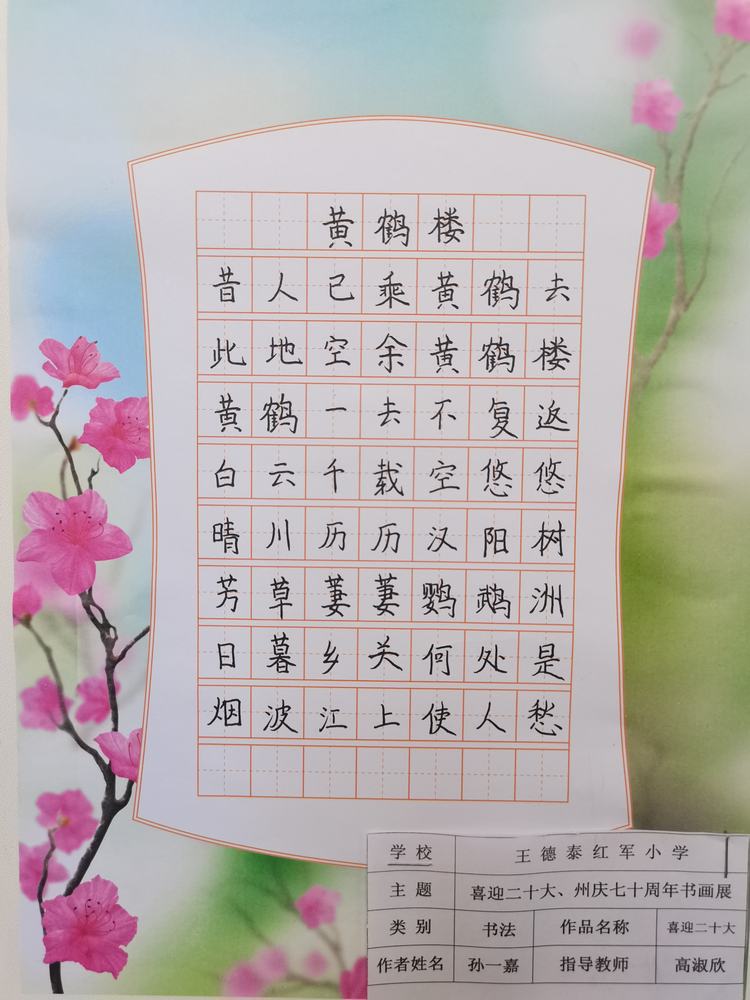 黄鹤楼
昔人已乘黄鹤去
此地空余黄鹤楼
黄鹤一去不复返
白云千载空悠悠
晴川历历汉阳树
芳草萋萋鹦鹉洲
日暮乡关何处是
烟波江上使人愁
学校 王德泰红军小学
主题 喜迎二十大、州庆七十周年书画展
类别 书法 作品名称 喜迎二十大
作者姓名 孙一嘉 指导教师 高淑欣